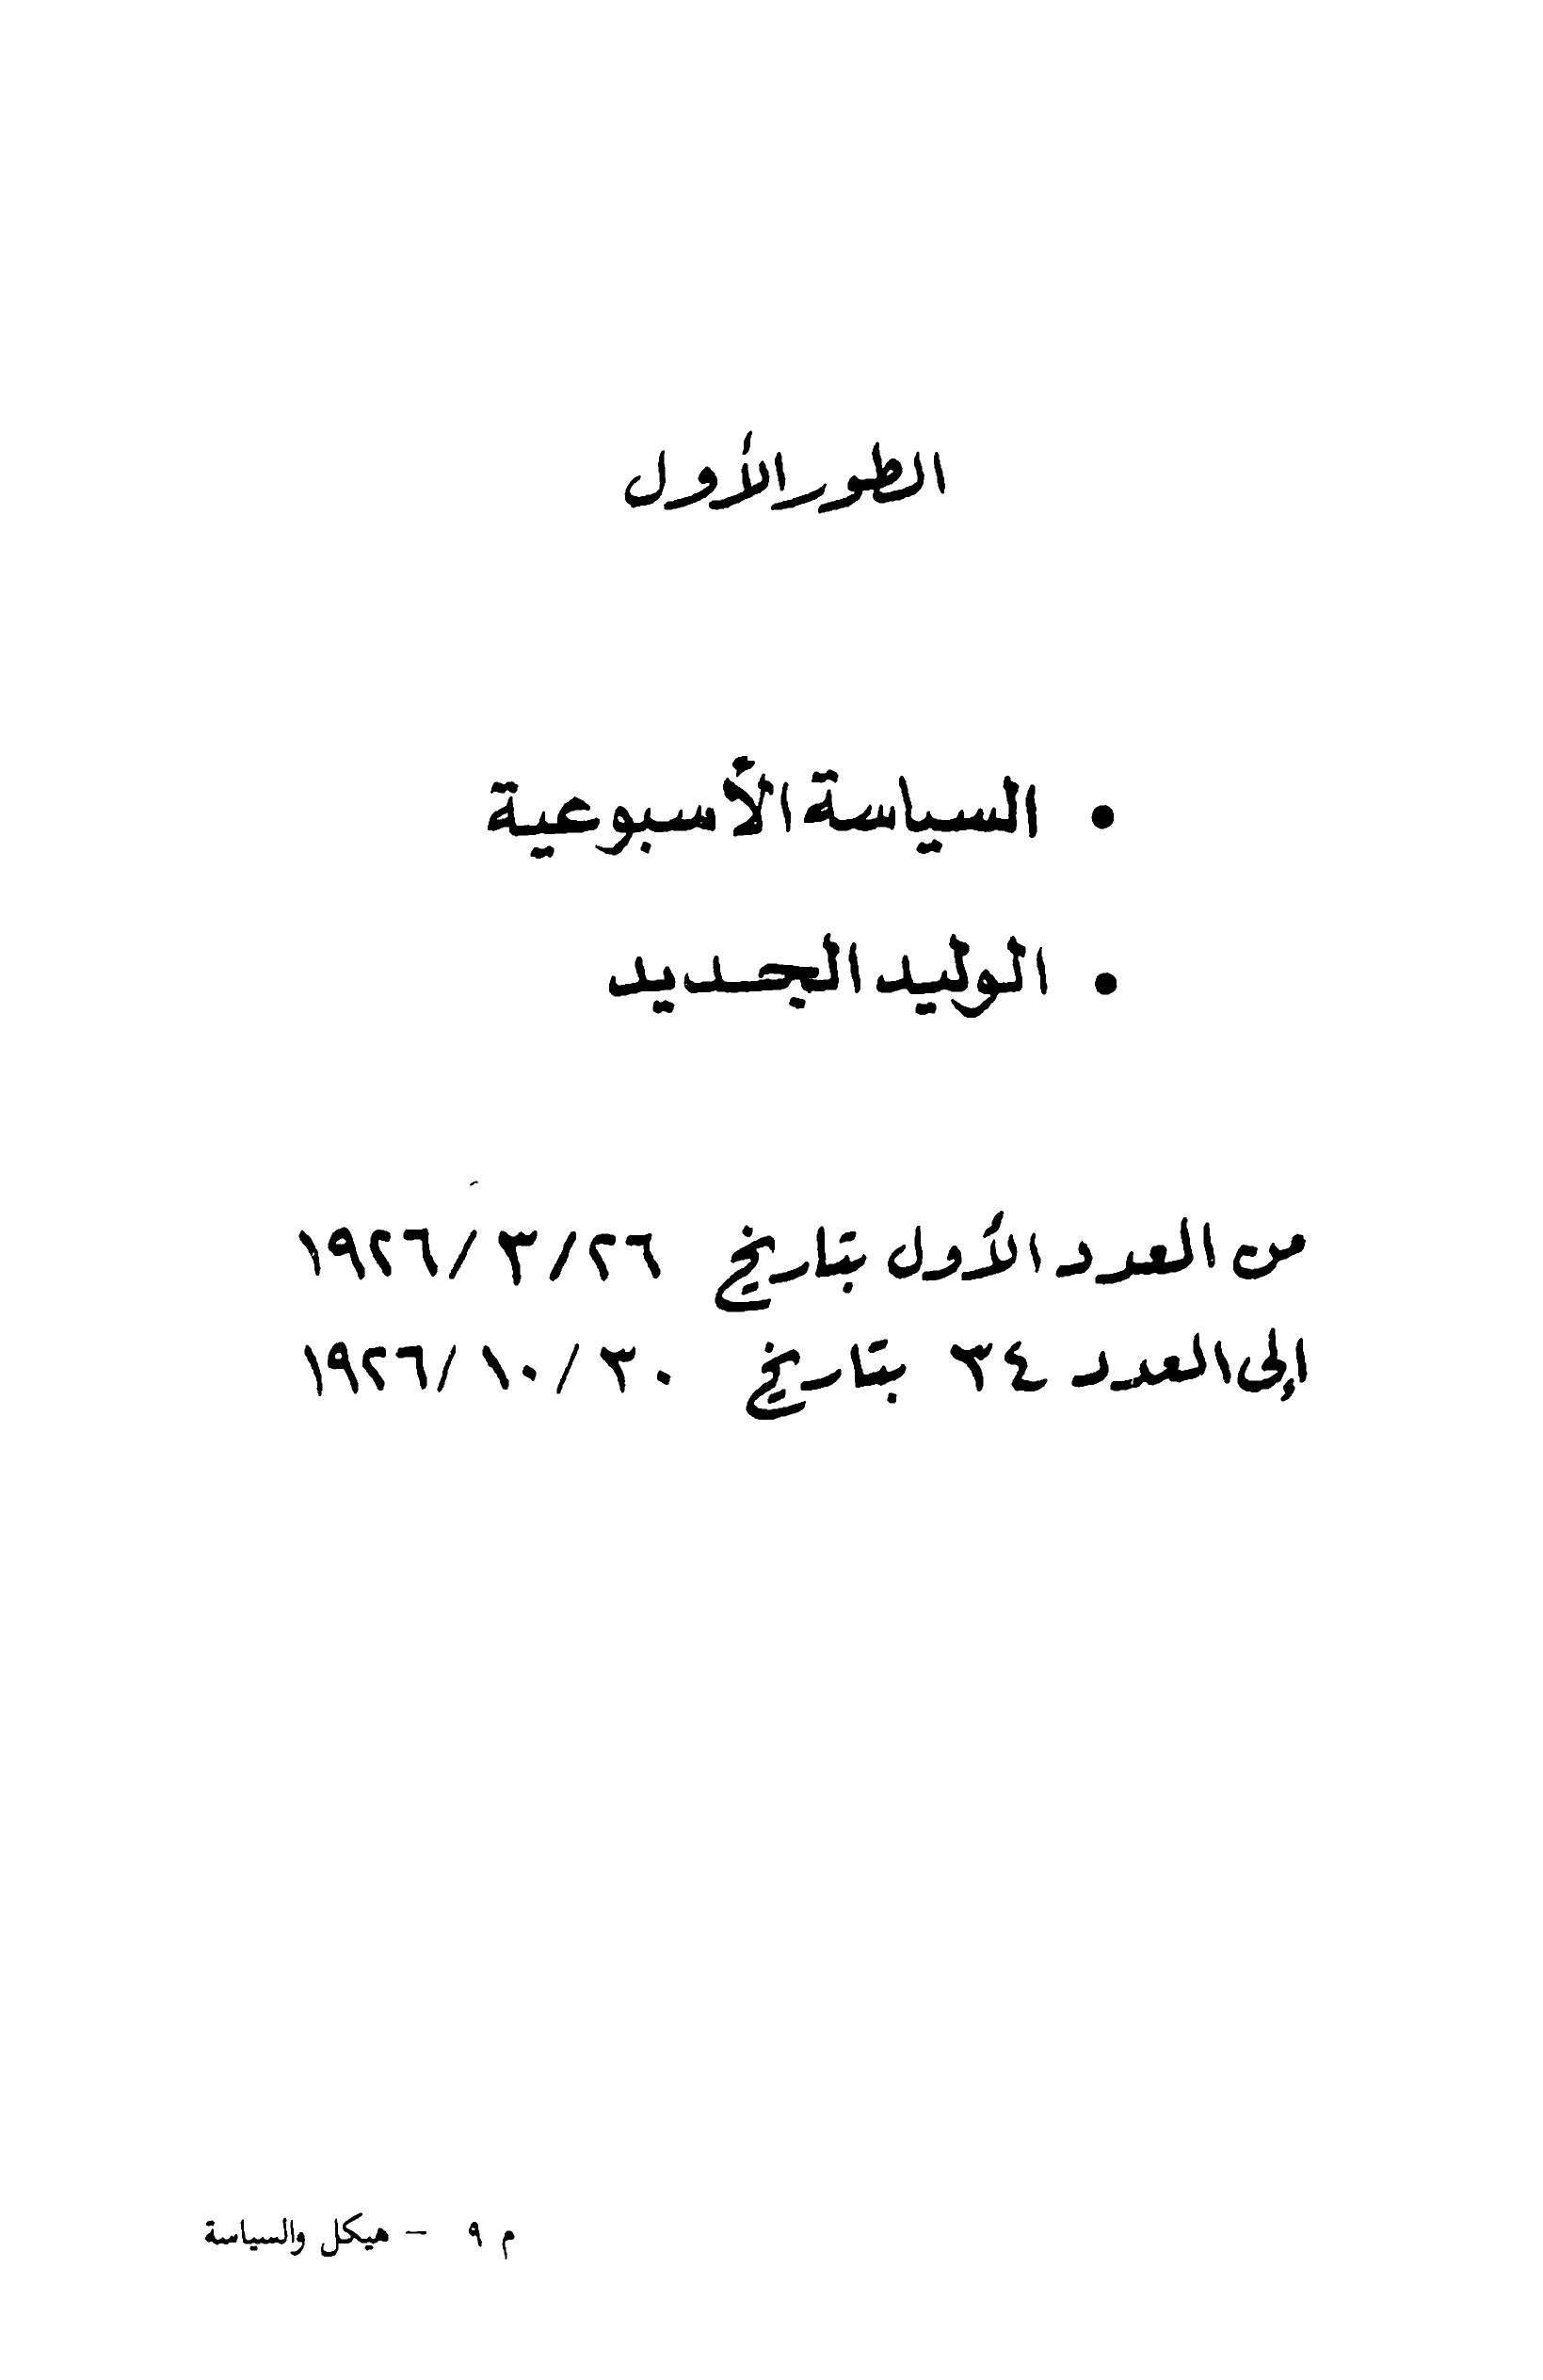 الطور الأول
• السياسة الأسبوعية
• الوليد الجديد
من العدد الأول بتاريخ ٢٦/٣/١٩٢٦
إلى العدد ٣٤ بتاريخ ٣٠/١٠/١٩٢٦
م ٩ – هيكل والسياسة